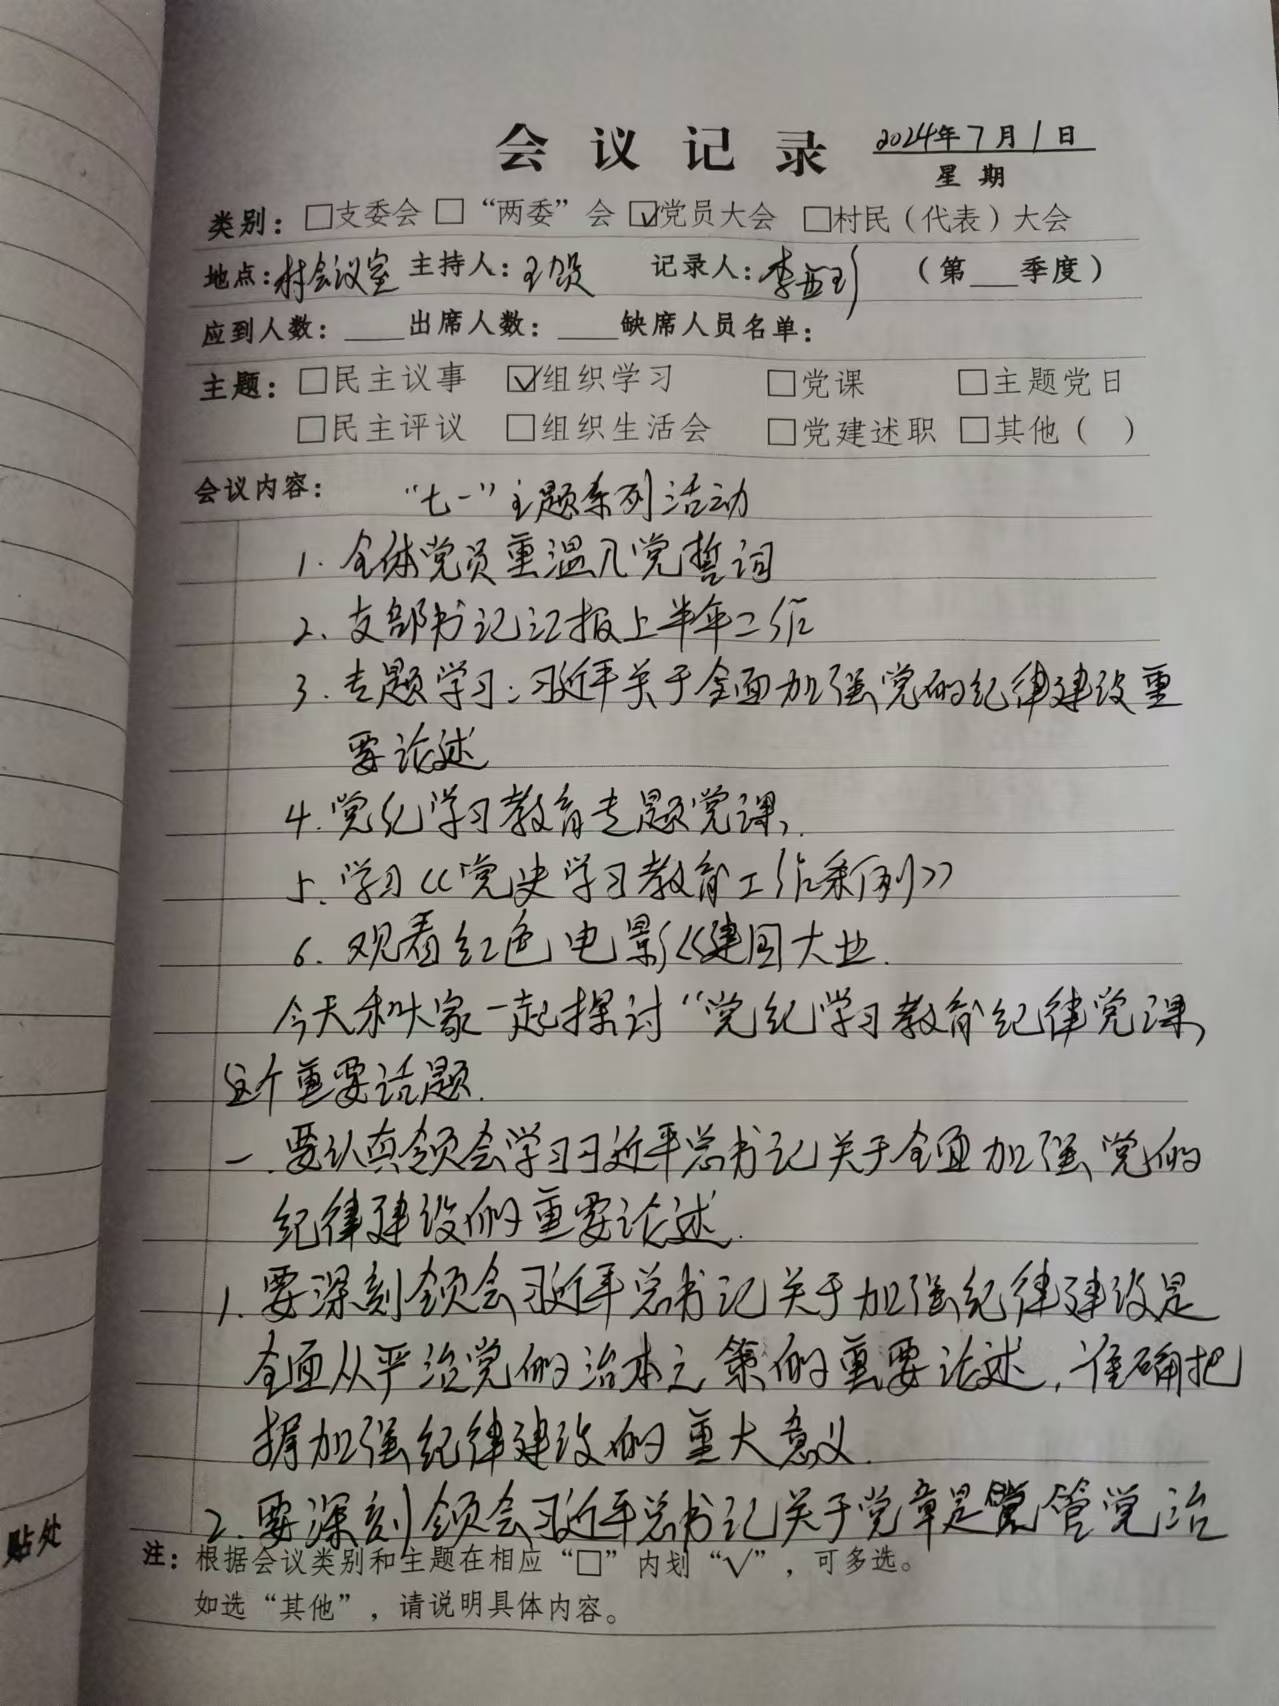 会议记录 2024年7月1日
星期
类别：□支委会 □“两委”会 ☑党员大会 □村民（代表）大会
地点：村会议室 主持人：王 记录人：李 （第___季度）
应到人数：____出席人数：____缺席人员名单：
主题：□民主议事 ☑组织学习 □党课 □主题党日
□民主评议 □组织生活会 □党建述职 □其他（ ）
会议内容： “七一”主题系列活动
1. 全体党员重温入党誓词
2. 支部书记汇报上半年工作
3. 专题学习：习近平关于全面加强党的纪律建设重
要论述
4. 党纪学习教育专题党课，
5. 学习《党史学习教育工作条例》
6. 观看红色电影《建国大业.
今天和大家一起探讨“党纪学习教育纪律党课，
这个重要话题.
一. 要认真领会学习习近平总书记关于全面加强党的
纪律建设的重要论述.
1. 要深刻领会习近平总书记关于加强纪律建设是
全面从严治党的治本之策的重要论述，准确把
握加强纪律建设的重大意义.
2. 要深刻领会习近平总书记关于党章是党管党治
注：根据会议类别和主题在相应“□”内划“√”，可多选。
如选“其他”，请说明具体内容。
贴处